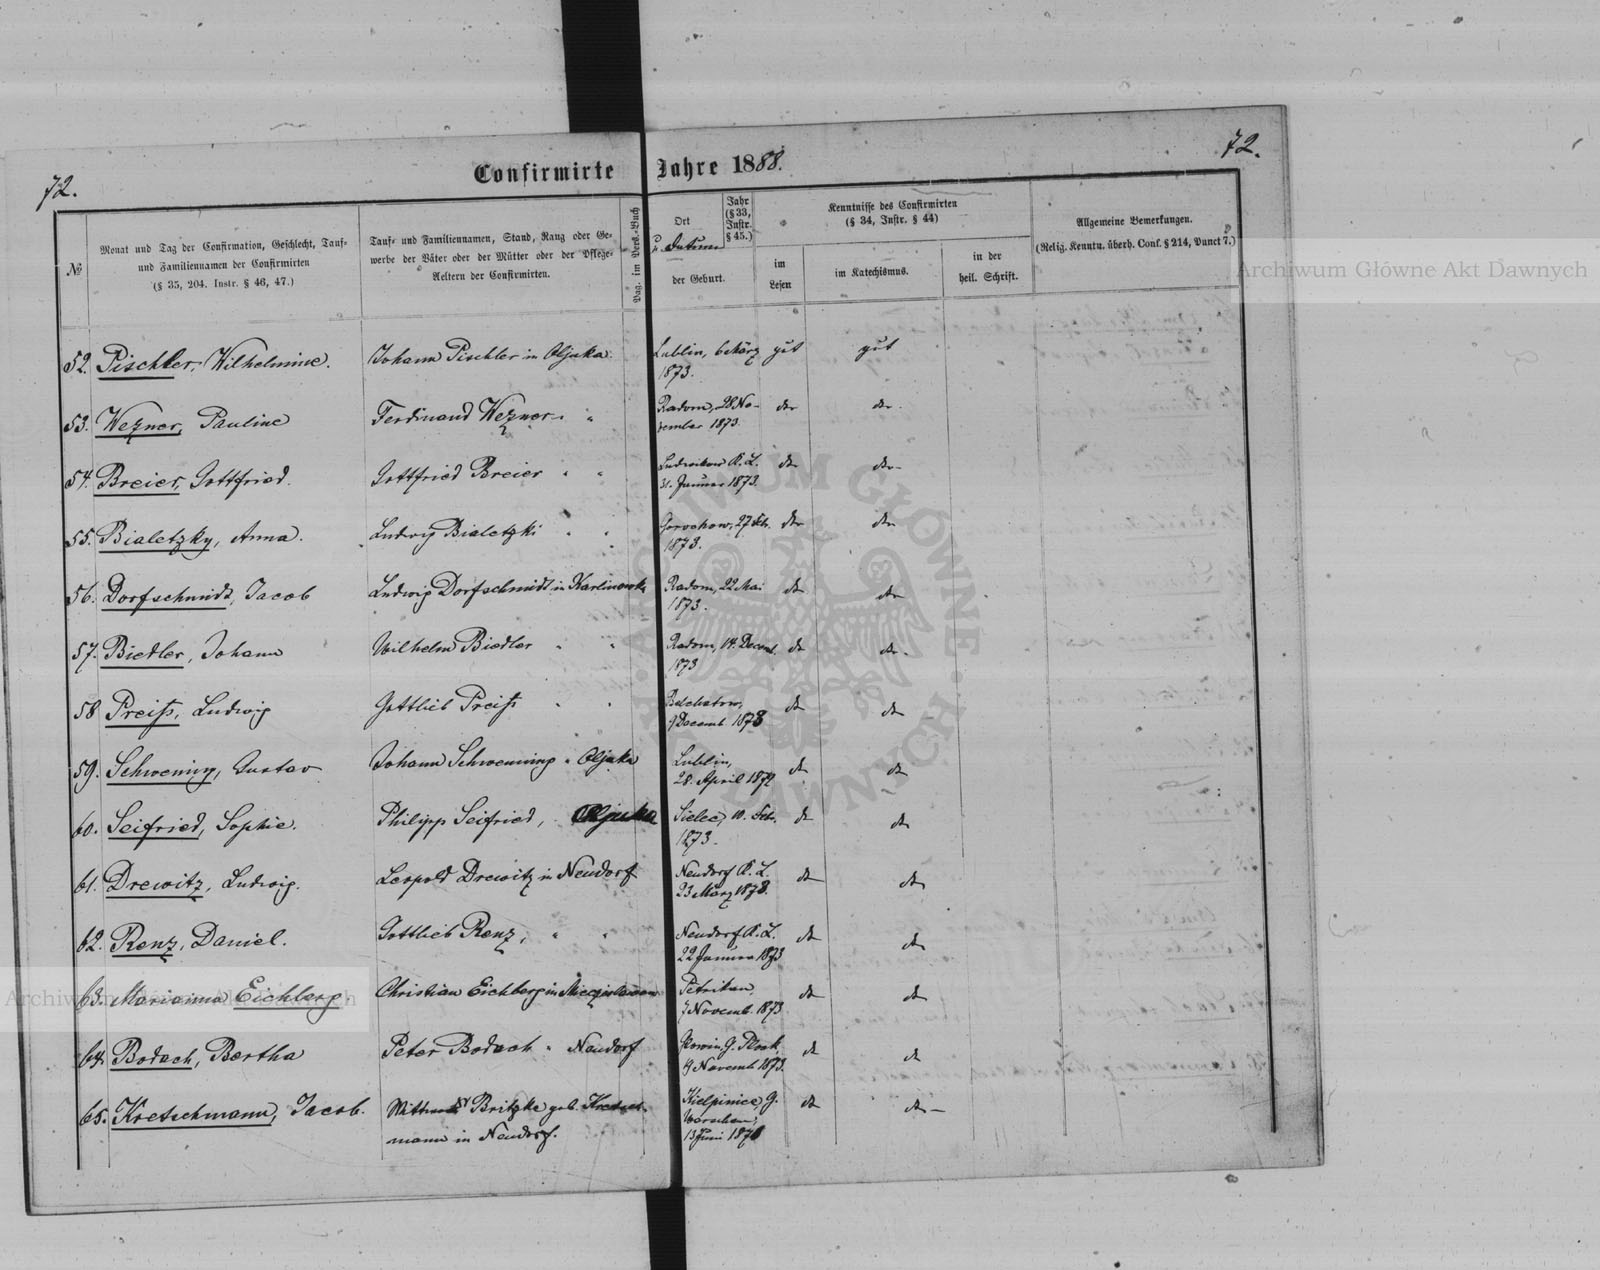 72.
72.
Confirmirte Jahre 1888.
№
Monat und Tag der Confirmation, Geschlecht, Tauf-
und Familiennamen der Confirmirten
(§ 35, 204. Instr. § 46, 47.)
Tauf- und Familiennamen, Stand, Rang oder Ge-
werbe der Väter oder der Mütter oder der Pflege-
Aeltern der Confirmirten.
Pag. im Pers.-Buch
Ort
u. Datum
der Geburt.
Jahr
(§ 33,
Instr.
§ 45.)
Kenntnisse des Confirmirten
(§ 34, Instr. § 44)
im
Lesen
im Katechismus.
in der
heil. Schrift.
Allgemeine Bemerkungen.
(Relig. Kenntn. überh. Conf. § 214, Punct 7.)
52. Pischler, Wilhelmine. Johann Pischler in Olyuka. Lublin, 6 März gut gut
1873.
53. Wezner, Pauline Ferdinand Wezner " " Radom, 28 No-
vember 1873.
54. Breier, Gottfried. Gottfried Breier " " Ludwikow K. L.
31. Januar 1873.
55. Bialetzky, Anna. Ludwig Bialetzki " " Gorochow, 27 Feb.
1873.
56. Dorfschmidt, Jacob Ludwig Dorfschmidt in Karlinowka Radom, 22 Mai
1873.
57. Biedler, Johann Wilhelm Biedler " " Radom, 14. Decemb.
1873
58 Preiß, Ludwig Gottlieb Preiß " " Belchatow,
9 Decemb 1873
59. Schwening, Gustav Johann Schwenning " Olyka Lublin,
28. April 1872
60. Seifried, Sophie. Philipp Seifried, Olyuka Sielec, 10. Feb.
1873.
61. Drewitz, Ludwig. Leopold Drewitz in Neudorf Neudorf K. L.
23 März 1873.
62. Renz, Daniel. Gottlieb Renz, " " Neudorf K. L.
22 Januar 1873
63. Marianna Eichberg. Christian Eichberg in Petrikau
7 Novemb. 1873
64. Bodach, Bertha Peter Bodach " Neudorf G. Plock
9 Novemb 1873.
65. Kretschmann, Jacob. Wittwe Britzke geb. Kretsch-
mann in Neudorf. Kielpiniec, G.
Warschau,
13 Juni 1871
Archiwum Główne Akt Dawnych
Archiwum Główne Akt Dawnych
ARCHIWUM GŁÓWNE AKT DAWNYCH